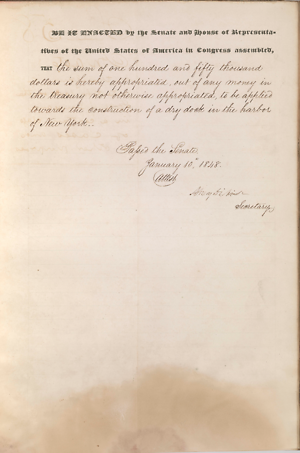 BE IT ENACTED by the Senate and House of Representa-
tives of the United States of America in Congress assembled,
THAT the sum of one hundred and fifty thousand
dollars is hereby appropriated, out of any money in
the treasury not otherwise appropriated, to be applied
towards the construction of a dry dock in the harbor
of New York.
Passed the Senate
January 10, 1848.
Attest
Secretary